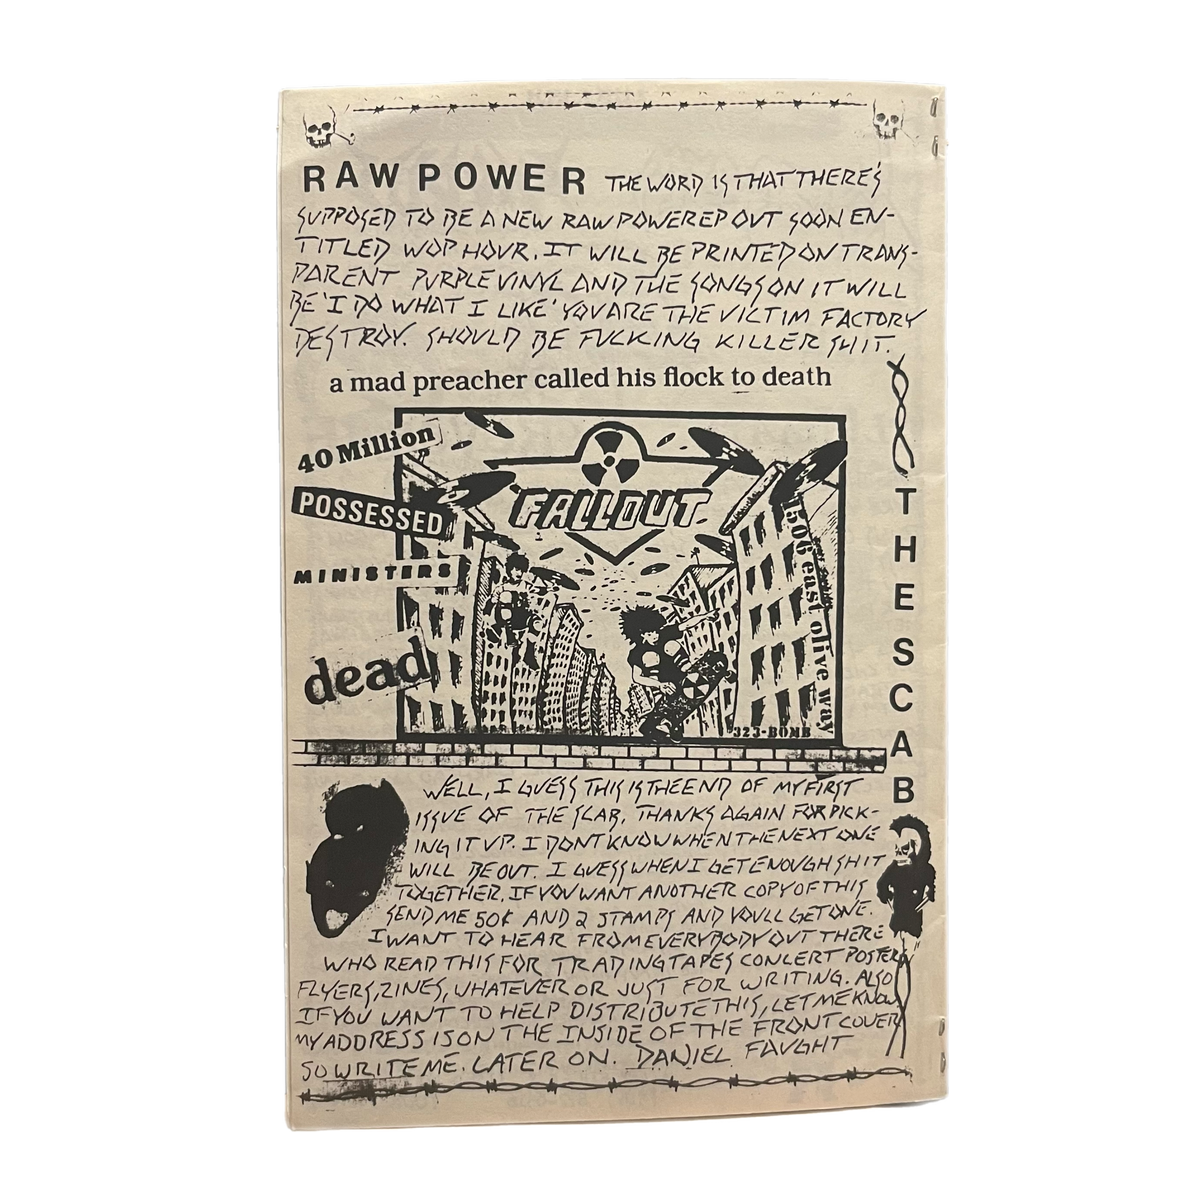 RAW POWER THE WORD IS THAT THERE'S
SUPPOSED TO BE A NEW RAW POWER EP OUT SOON EN-
TITLED WOP HOUR. IT WILL BE PRINTED ON TRANS-
PARENT PURPLE VINYL AND THE SONGS ON IT WILL
BE 'I DO WHAT I LIKE' YOU ARE THE VICTIM FACTORY
DESTROY. SHOULD BE FUCKING KILLER SHIT.
a mad preacher called his flock to death
40 Million
POSSESSED
MINISTERS
dead
FALLOUT
1506 east olive way
323-BOMB
THE SCAB
WELL, I GUESS THIS IS THE END OF MY FIRST
ISSUE OF THE SCAB. THANKS AGAIN FOR PICK-
ING IT UP. I DONT KNOW WHEN THE NEXT ONE
WILL BE OUT. I GUESS WHEN I GET ENOUGH SHIT
TOGETHER. IF YOU WANT ANOTHER COPY OF THIS
SEND ME 50¢ AND 2 STAMPS AND YOULL GET ONE.
I WANT TO HEAR FROM EVERYBODY OUT THERE
WHO READ THIS FOR TRADING TAPES CONCERT POSTERS
FLYERS, ZINES, WHATEVER OR JUST FOR WRITING. ALSO
IF YOU WANT TO HELP DISTRIBUTE THIS, LET ME KNOW
MY ADDRESS IS ON THE INSIDE OF THE FRONT COVER
SO WRITE ME. LATER ON. DANIEL FAUGHT